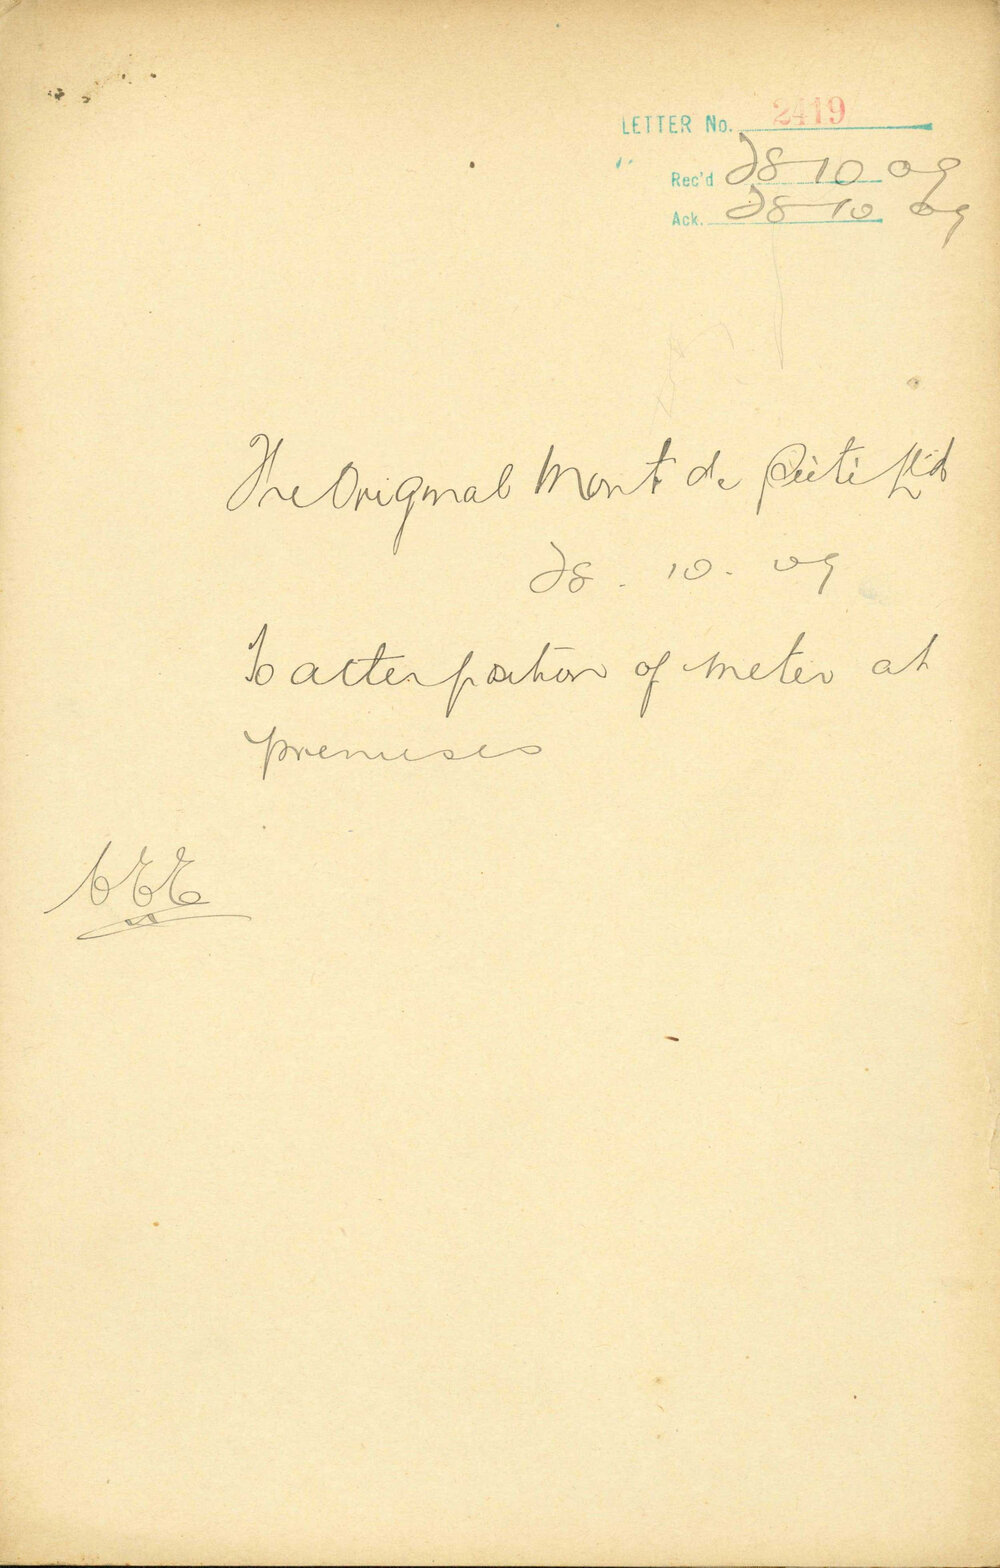 LETTER No. 2419
Rec'd 28 10 09
Ack. 28 10 09
The Original Mont de Piété Ltd
28. 10. 09
To alter position of meter at
premises
CEE